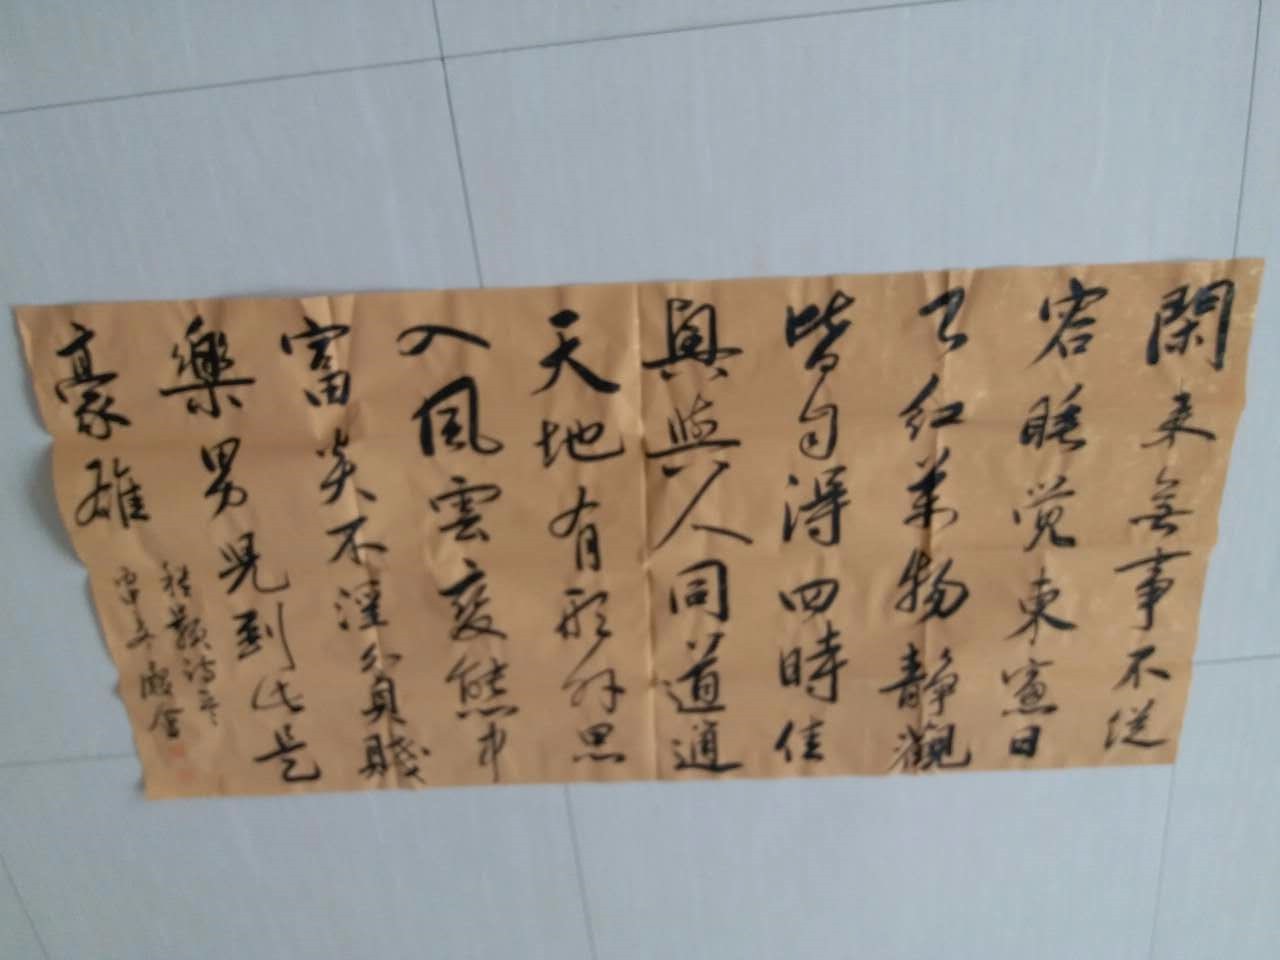 閑来無事不従
容睡覚東窓日
已红萬物静觀
皆自得四時佳
興与人同道通
天地有形外思
入風雲変態中
富貴不淫貧賤
樂男児到此是
豪雄
程顥詩一首